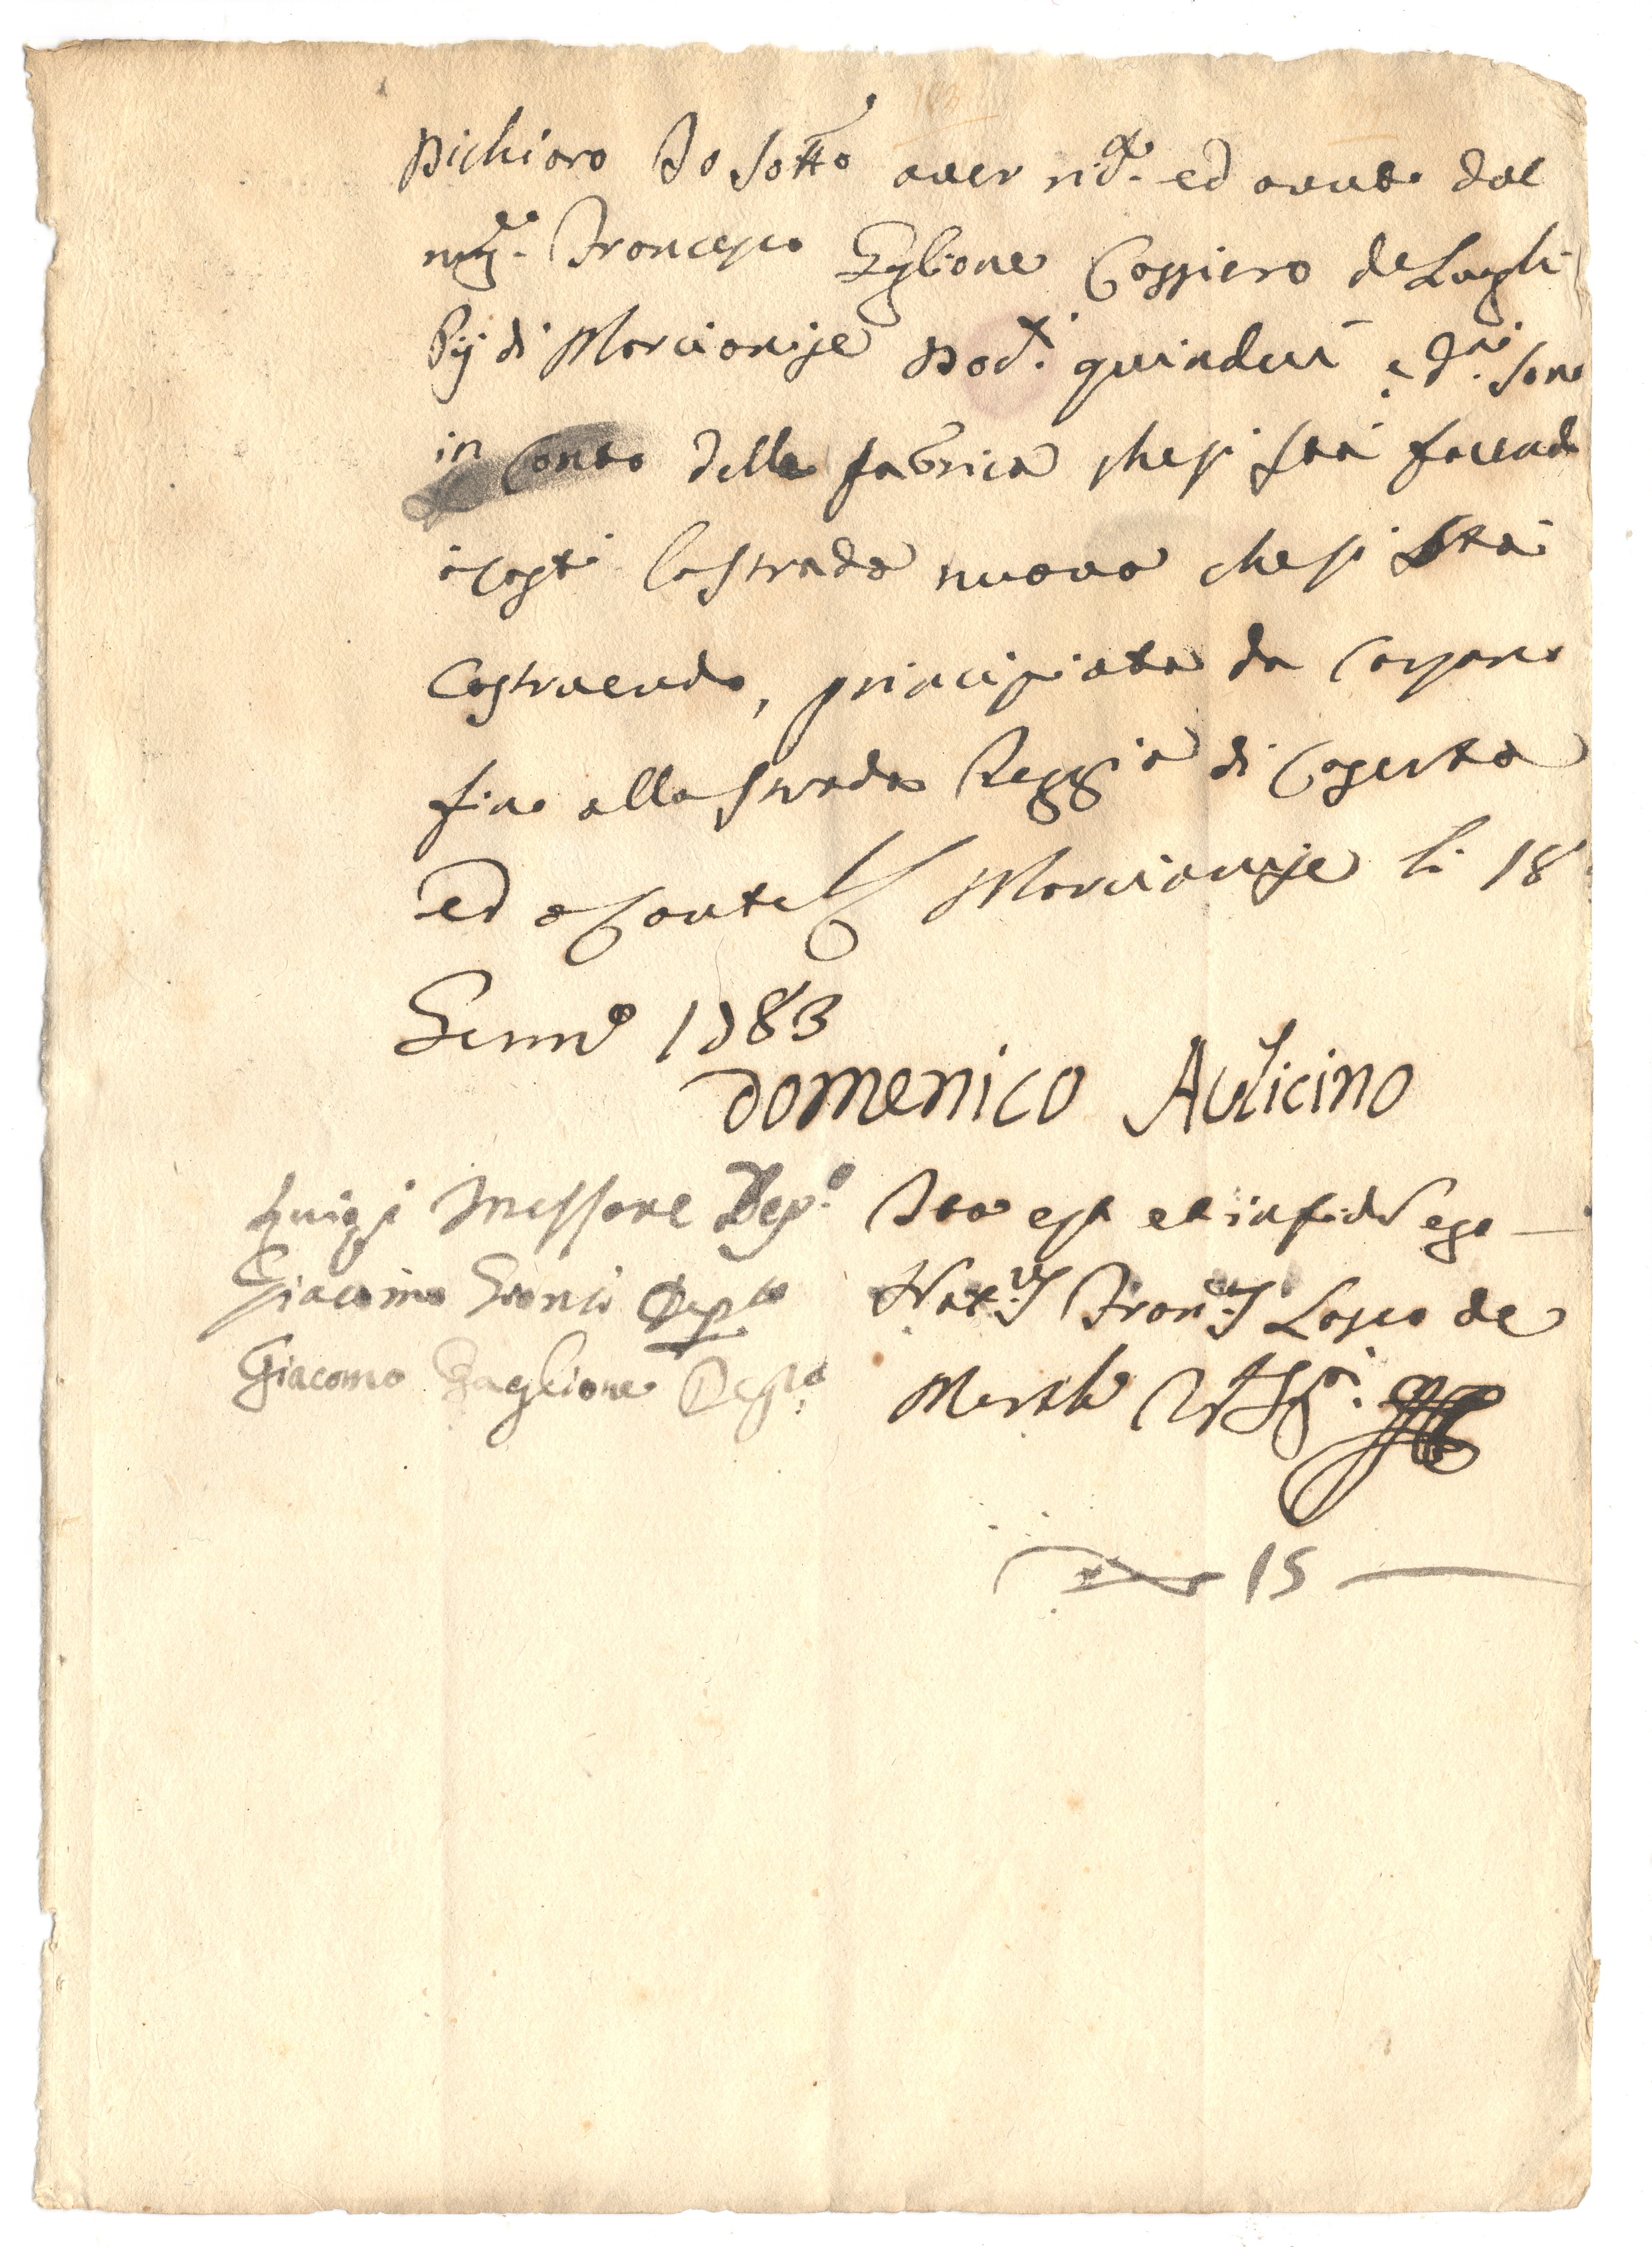 Dichiaro Io sotto aver ric.to ed avuto dal
mag.co Francesco Gaglione Cassiero de Luoghi
Pij di Marcianise Doc.ti quindeci, e d.ti sono
in conto della fabrica che si sta facendo
la strada nuova che si sta
costruendo, principiata da
fino alla strada Reggia di Caserta
ed a cautela Marcianise li 18
Genn.o 1783
Domenico Aulicino
Luigi Messore Dep.o
Giacomo Dep.to
Giacomo Gaglione Dep.to
Ita est et in fidem ego
Not.us Fran.cus Losco de
Marci
15